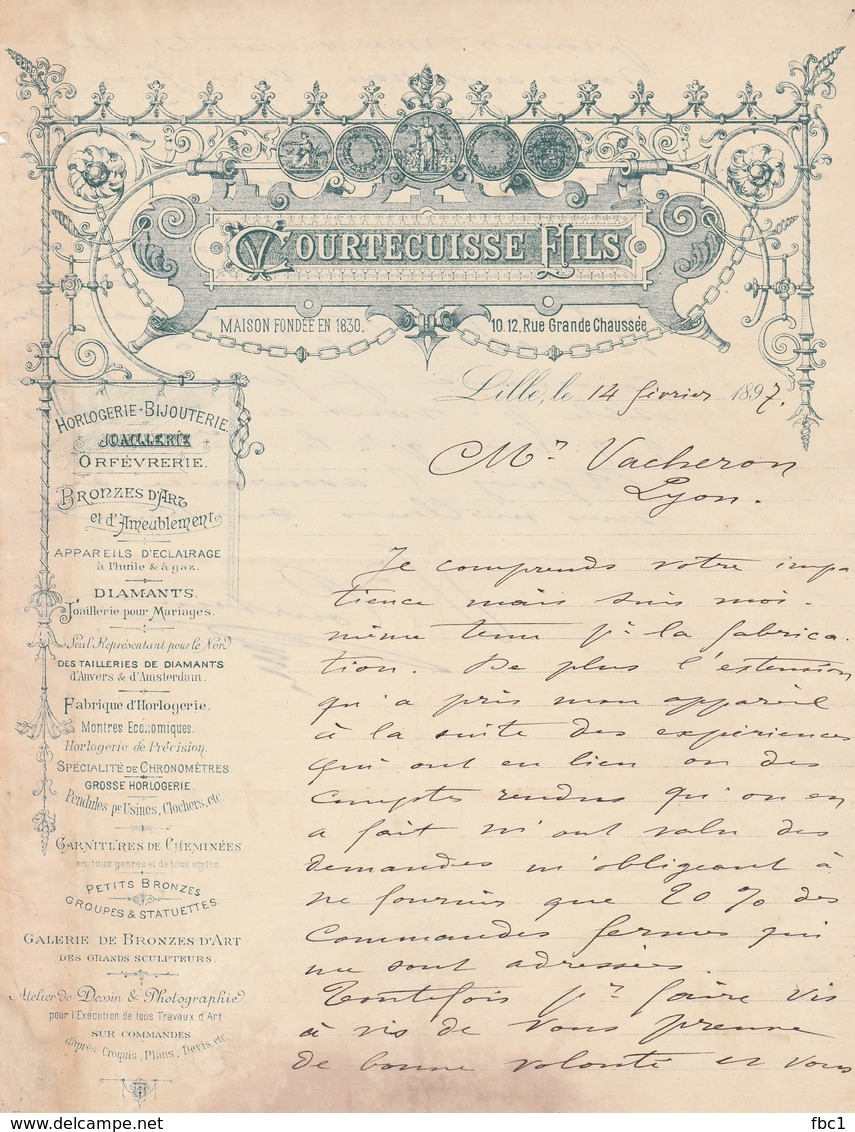 V. COURTECUISSE FILS
MAISON FONDÉE EN 1830.
10.12, Rue Grande Chaussée
Lille, le 14 février 1897.
HORLOGERIE-BIJOUTERIE.
JOAILLERIE
ORFÉVRERIE.
BRONZES D'ART
et d'Ameublement
APPAREILS D'ECLAIRAGE
à l'huile & à gaz.
DIAMANTS.
Joaillerie pour Mariages.
Seul Représentant pour le Nord
DES TAILLERIES DE DIAMANTS
d'Anvers & d'Amsterdam.
Fabrique d'Horlogerie.
Montres Economiques.
Horlogerie de Précision.
SPÉCIALITÉ DE CHRONOMÈTRES
GROSSE HORLOGERIE.
Pendules pr Usines, Clochers, etc.
GARNITURES DE CHEMINÉES
en tous genres et de tous styles.
PETITS BRONZES
GROUPES & STATUETTES.
GALERIE DE BRONZES D'ART
DES GRANDS SCULPTEURS.
Atelier de Dessin & Photographie
pour l'Exécution de tous Travaux d'Art
SUR COMMANDES
d'après Croquis, Plans, Devis, etc.
Mr Vacheron
Lyon.
Je comprends votre impa
tience mais suis moi-
même tenu pr la fabrica-
tion. De plus l'extension
qu'a pris mon appareil
à la suite des expériences
qui ont eu lieu ou des
comptes rendus qu'on en
a fait m'ont valu des
demandes m'obligeant à
ne fournir que 20 % des
commandes fermes qui
me sont adressées.
Toutefois pr faire vis
à vis de vous preuve
de bonne volonté et vous
fbc1